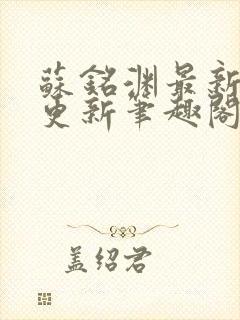 蘇銘淵最新
更新筆趣閣
盖绍君